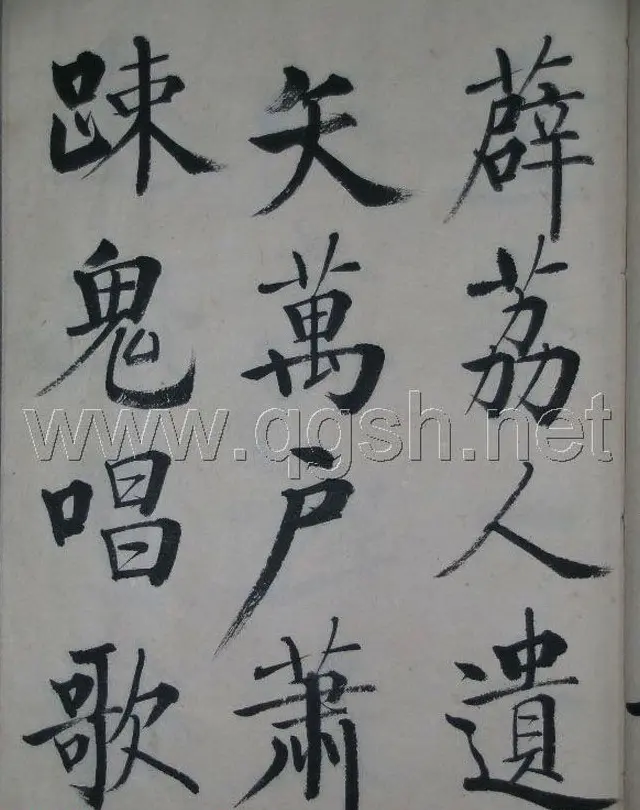 薜荔人遺
矢萬户蕭
踈鬼唱歌
www.qgsh.net